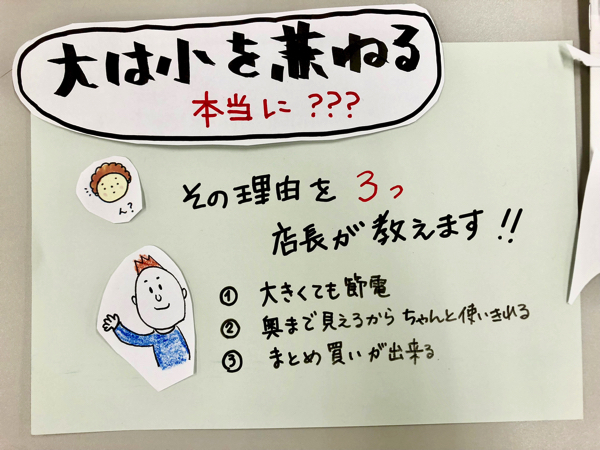 大は小を兼ねる
本当に???
…
ん?
その理由を3つ
店長が教えます!!
① 大きくても節電
② 奥まで見えるからちゃんと使いきれる
③ まとめ買いが出来る